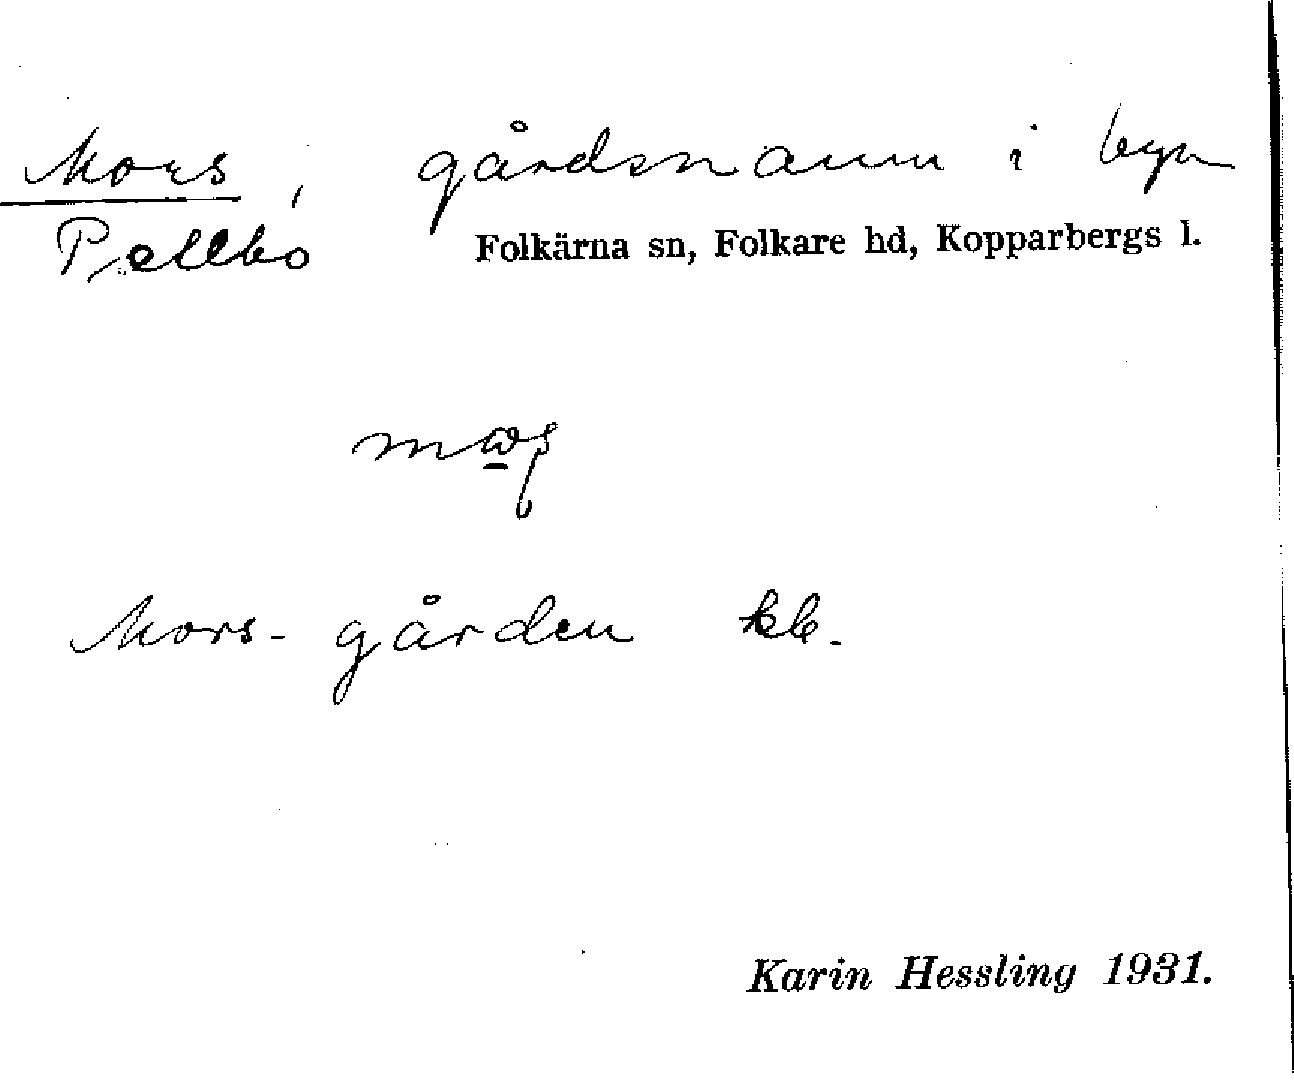 Mors, gårdsnamn i byn
Pellbo Folkärna sn, Folkare hd, Kopparbergs l.
Mors-gården kb.
Karin Hessling 1931.